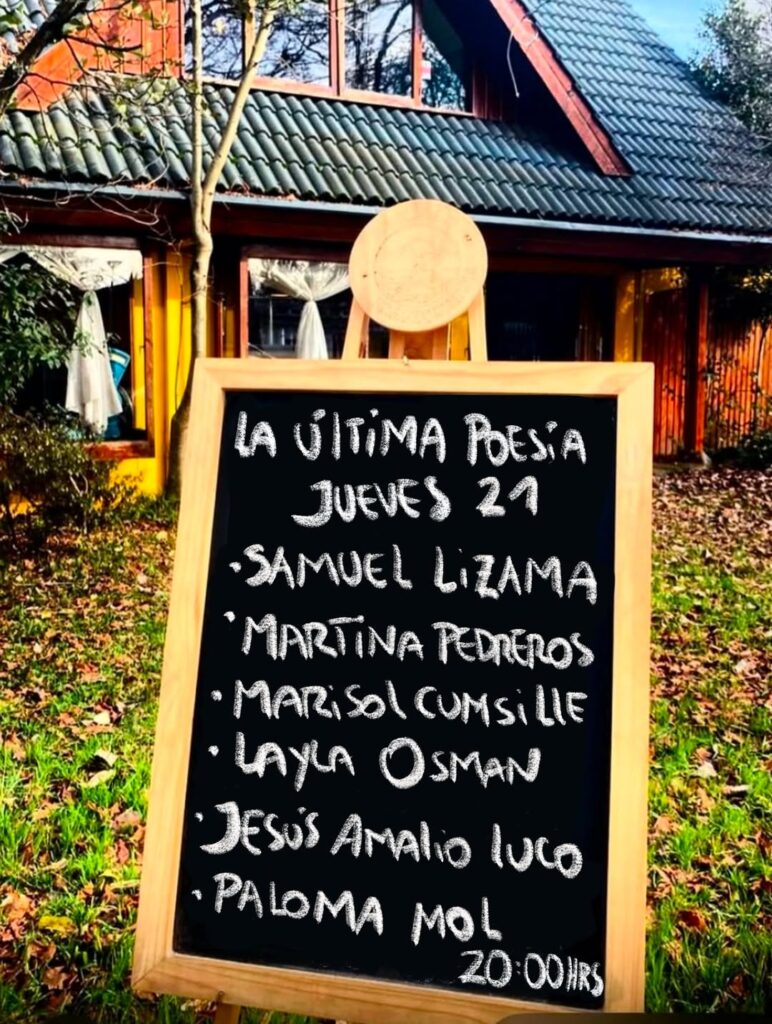 LA ÚLTIMA POESÍA
JUEVES 21
·SAMUEL LIZAMA
·MARTINA PEDREROS
·MARISOL CUMSILLE
·LAYLA OSMAN
·JESÚS AMALIO LUCO
·PALOMA MOL
20:00HRS